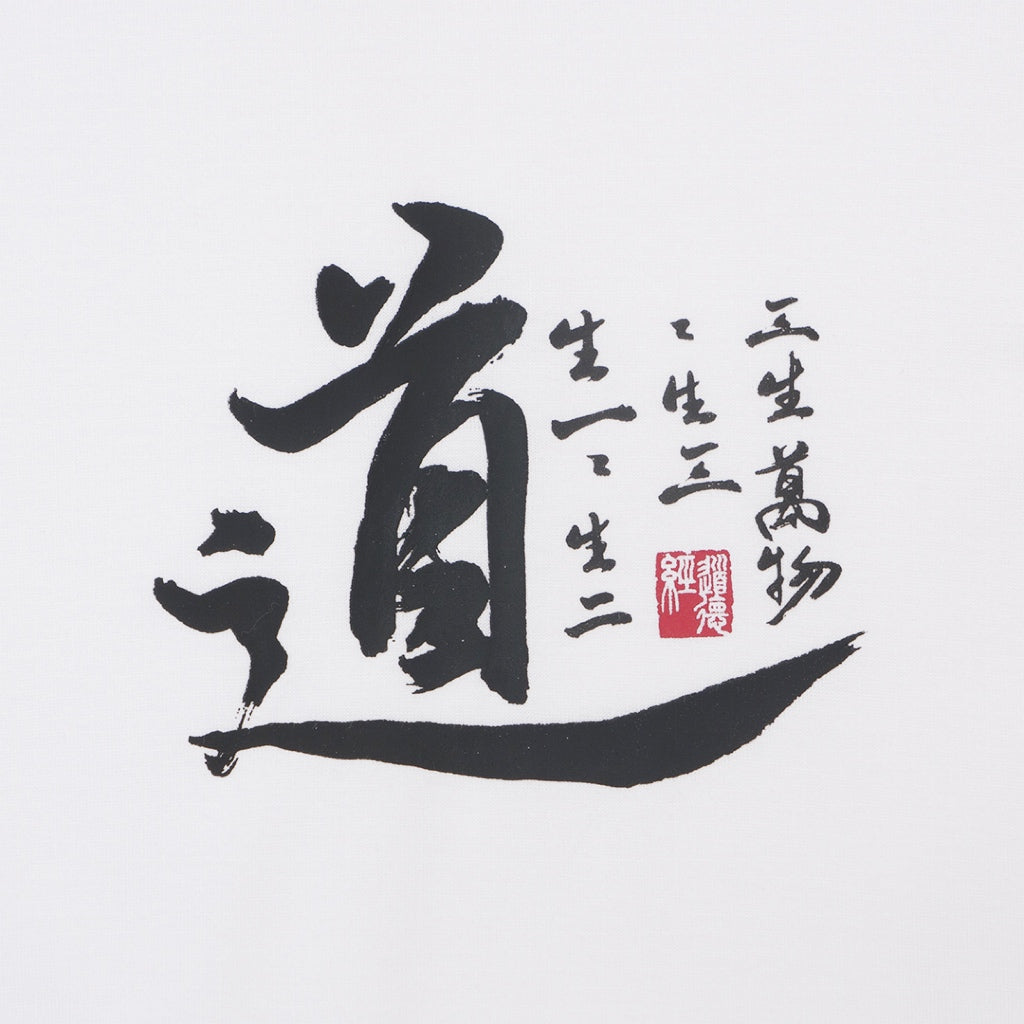 道
生一〻生二
〻生三
三生萬物
道德經